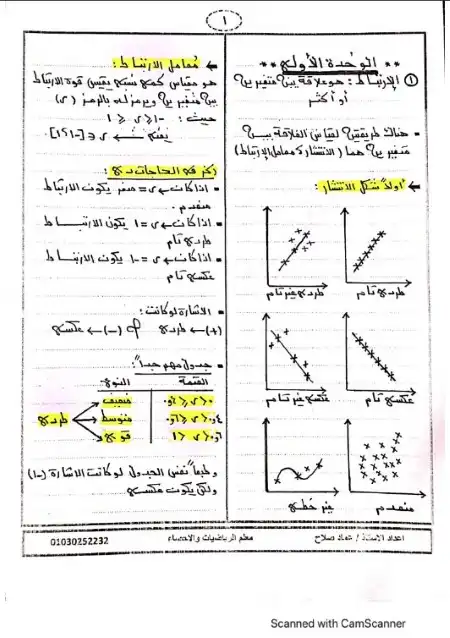 ١
** الوحدة الأولى **
① الارتباط : هو علاقة بين متغيرين
أو أكثر
• هناك طريقتين لقياس العلاقة بين
متغيرين هما ( الانتشار & معامل الارتباط )
← أولاً شكل الانتشار :
طردى تام
طردى غير تام
عكسى تام
عكسى غير تام
منعدم
غير خطى
← معامل الارتباط :
هو مقياس كمى نسبى يقيس قوة الارتباط
بين متغيرين ويرمز له بالرمز (ر)
حيث : -١ ≤ ر ≤ ١
يعنى ← ر ∈ [-١ ، ١]
ركز فى الحاجات دى :
• اذا كانت ← ر = صفر يكون الارتباط
منعدم .
• اذا كانت ← ر = ١ يكون الارتباط
طردى تام
• اذا كانت ← ر = -١ يكون الارتباط
عكسى تام
• الاشارة لو كانت :
(+) ← طردى & (-) ← عكسى
• جدول مهم جداً :
القيمة النوع
ضعيف
متوسط طردى
قوى
وطبعاً نفس الجدول لو كانت الاشارة (-)
ولكن يكون عكسى
اعداد الاستاذ / عماد صلاح معلم الرياضيات والاحصاء 01030252232
Scanned with CamScanner